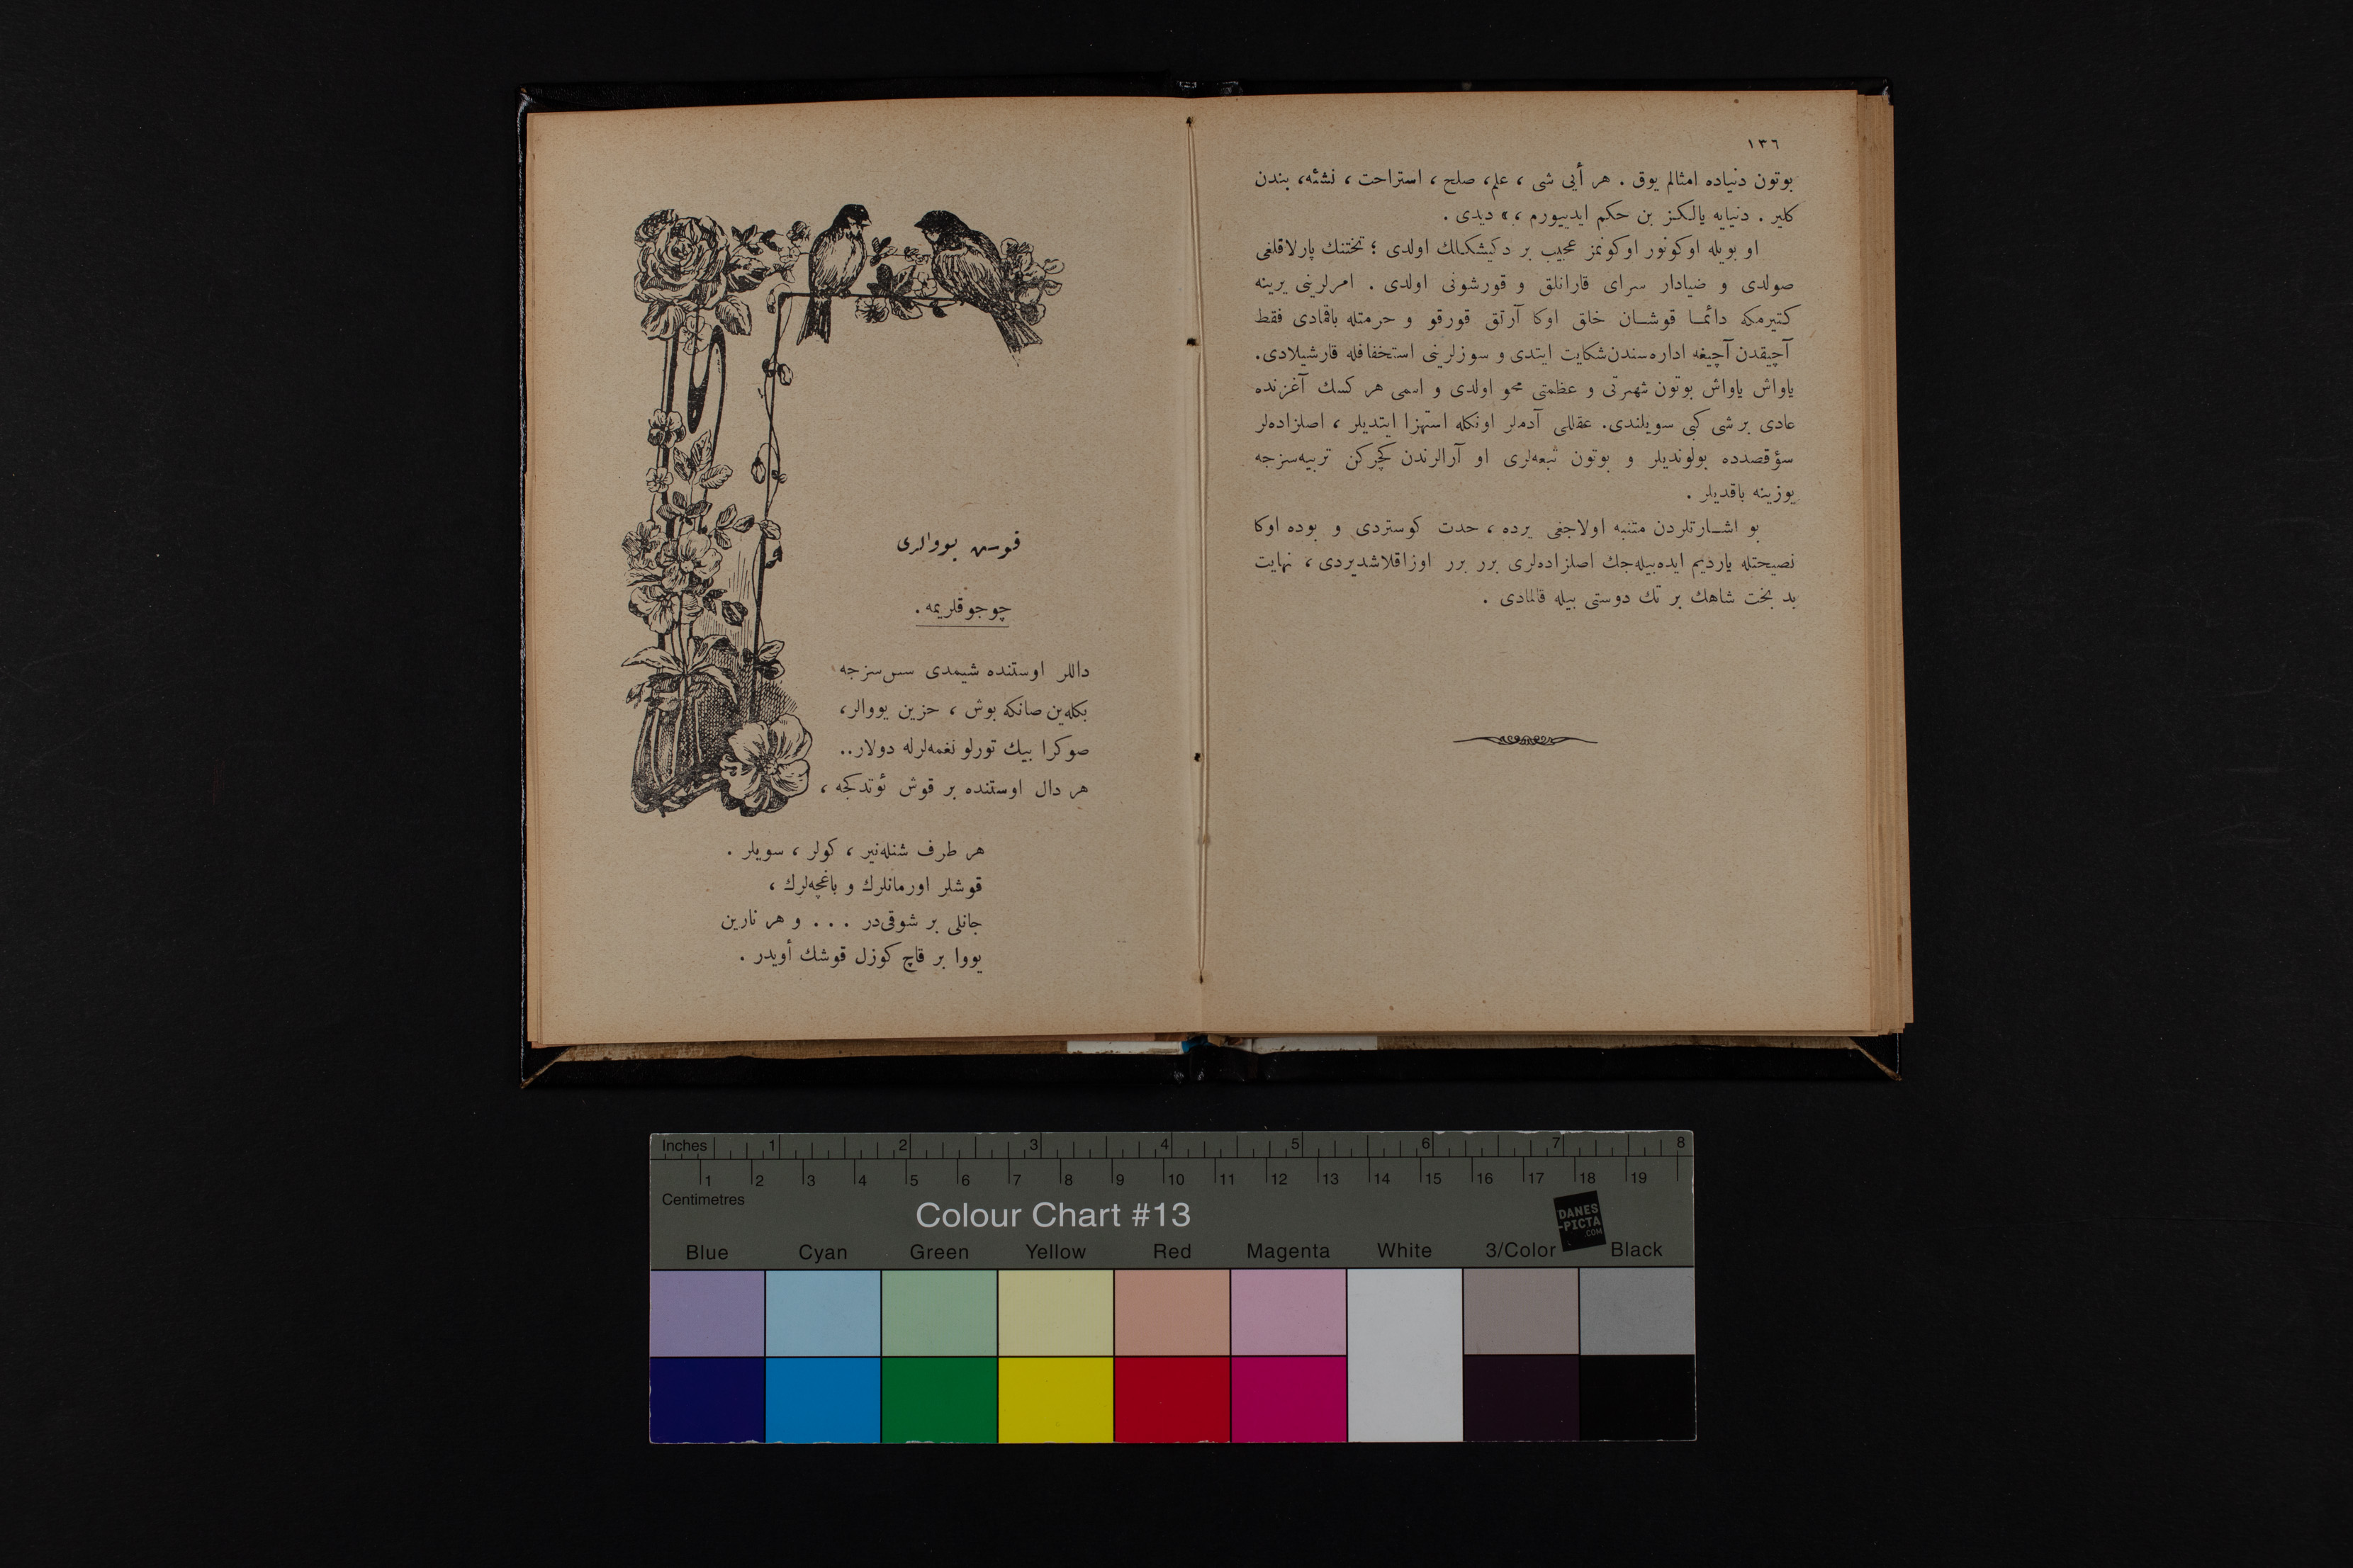 ١٣٦
بوتون دنیاده امثالم یوق . هر أیی شی ، علم، صلح ، استراحت ، نشئه، بندن
کلیر . دنیایه یالکز بن حکم ایدییورم ،» دیدی .
او بویله اوکونور اوکونمز عجیب بر دکیشکلك اولدی ؛ تختنك پارلاقلغی
صولدی و ضیادار سرای قارانلق و قورشونی اولدی . امرلرینی یرینه
کتیرمکه دائمـا قوشـان خلق اوکا آرتق قورقو و حرمتله باقمادی فقط
آچیقدن آچیغه اداره‌سندن شکایت ایتدی و سوزلرینی استخفافله قارشیلادی.
یاواش یاواش بوتون شهرتی و عظمتی محو اولدی و اسمی هر کسك آغزنده
عادی بر شی کبی سویلندی. عقللی آدملر اونکله استهزا ایتدیلر ، اصلزاده‌لر
سؤقصدده بولوندیلر و بوتون تبعه‌لری او آرالرندن کچرکن تربیه‌سزجه
یوزینه باقدیلر .
بو اشـارتلردن متنبه اولاجغی یرده ، حدت کوستردی و بوده اوکا
نصیحتله یاردیم ایده‌بیله‌جك اصلزاده‌لری برر برر اوزاقلاشدیردی ، نهایت
بد بخت شاهك بر تك دوستی بیله قالمادی .
قوش یووالری
چوجوقلریمه .
داللر اوستنده شیمدی سس‌سزجه
بکله‌ین صانکه بوش ، حزین یووالر،
صوکرا بیك تورلو نغمه‌لرله دولار..
هر دال اوستنده بر قوش ئوتدکجه ،
هر طرف شنله‌نیر ، کولر ، سویلر .
قوشلر اورمانلرك و باغچه‌لرك ،
جانلی بر شوقی‌در . . . و هر نارین
یووا بر قاچ کوزل قوشك أویدر .
Inches 1 2 3 4 5 6 7 8
1 2 3 4 5 6 7 8 9 10 11 12 13 14 15 16 17 18 19
Centimetres
Colour Chart #13
DANES
-PICTA
.COM
Blue Cyan Green Yellow Red Magenta White 3/Color Black